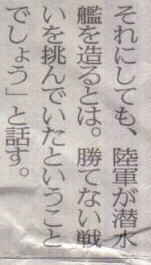 それにしても、陸軍が潜水
艦を造るとは。勝てない戦
いを挑んでいたということ
でしょう」と話す。